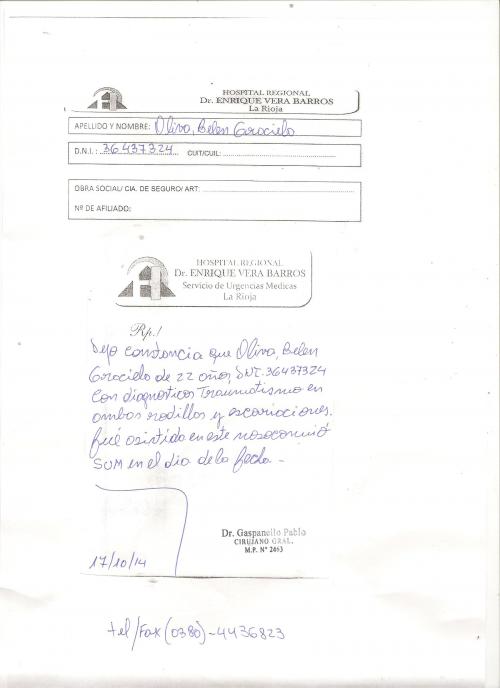 HOSPITAL REGIONAL
Dr. ENRIQUE VERA BARROS
La Rioja
APELLIDO Y NOMBRE: Oliva, Belen Graciela
D.N.I.: 36437324 CUIT/CUIL:
OBRA SOCIAL/ CIA. DE SEGURO/ ART:
Nº DE AFILIADO:
HOSPITAL REGIONAL
Dr. ENRIQUE VERA BARROS
Servicio de Urgencias Medicas
La Rioja
Rp./
Dejo constancia que Oliva, Belen
Graciela de 22 años, DNI. 36437324
Con diagnosticos Traumatismo en
ambas rodillas y escariaciones.
fué asistida en este nosocomió
SUM en el dia de la fecha -
Dr. Gaspanello Pablo
CIRUJANO GRAL.
M.P. N° 2463
17/10/14
tel/Fax (0380)-4436823